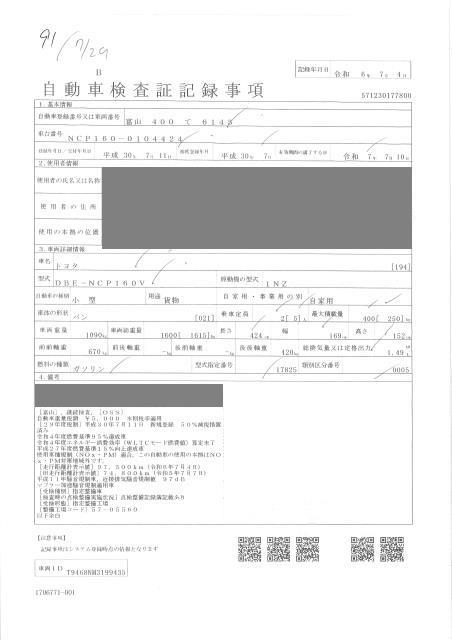 91/7/29
記録年月日 令和 6年 7月 4日
B
自動車検査証記録事項
571230177800
1.基本情報
自動車登録番号又は車両番号
富山 400 て 6143
車台番号
NCP160-0104424
登録年月日/交付年月日 平成 30年 7月 11日 初度登録年月 平成 30年 7月 有効期間の満了する日 令和 7年 7月 10日
2.使用者情報
使用者の氏名又は名称
使用者の住所
使用の本拠の位置
3.車両詳細情報
車名
トヨタ [194]
型式 DBE-NCP160V 原動機の型式 1NZ
自動車の種別 小型 用途 貨物 自家用・事業用の別 自家用
車体の形状 バン [021] 乗車定員 2[ 5]人 最大積載量 400[ 250]kg
車両重量 1090kg 車両総重量 1600[ 1615]kg 長さ 424cm 幅 169cm 高さ 152cm
前前軸重 670kg 前後軸重 -kg 後前軸重 -kg 後後軸重 420kg 総排気量又は定格出力 1.49L
燃料の種類 ガソリン 型式指定番号 17825 類別区分番号 0005
4.備考
[富山], 継続検査, [OSS]
自動車重量税額 ¥5,000 本則税率適用
[29年度税制]平成30年7月11日 新規登録 50%減税措置
済み
令和4年度燃費基準95%達成車
令和4年度エネルギー消費効率(WLTCモード燃費値)算定未了
平成27年度燃費基準15%向上達成車
使用車種規制(NOx・PM)適合, この自動車の使用の本拠はNO
x・PM対策地域外です。
[走行距離計表示値]97,500km(令和6年7月4日)
[旧走行距離計表示値]74,800km(令和5年7月7日)
平成11年騒音規制車, 近接排気騒音規制値 97dB
マフラー加速騒音規制適用車
[受検種別]指定整備車
[検査時の点検整備実施状況]点検整備記録簿記載あり
[受検形態]指定整備工場
[整備工場コード]57-05560
以下余白
[注意事項]
記録事項はシステム登録時点の情報となります
車両ID T9468NM3199435
1706771-001